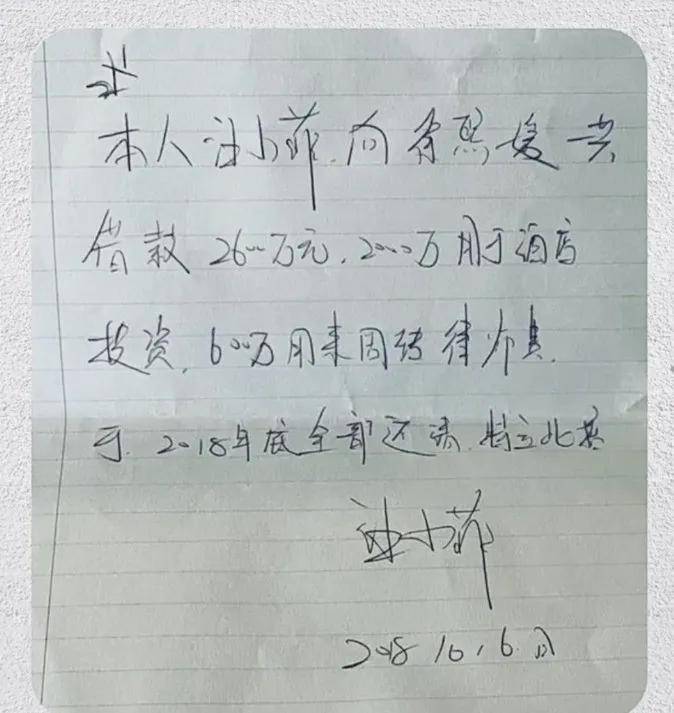 本人汪小菲.向徐熙媛共
借款 2600万元.2000万用于酒店
投资.600万用来周转律师费.
于.2018年底全部还清.特立此据
汪小菲
2018.10.6.日